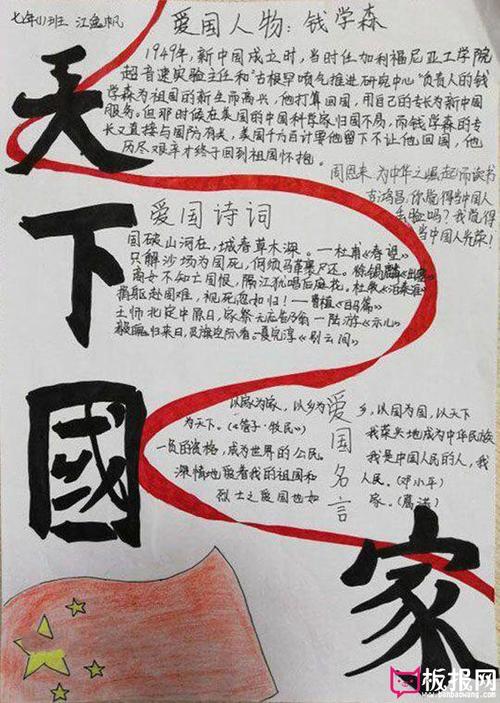 七年11班 江鑫帆
爱国人物:钱学森
1949年,新中国成立时,当时任加利福尼亚工学院
超音速实验主任和"古根罕喷气推进研究中心"负责人的钱
学森为祖国的新生而高兴,他打算回国,用自己的专长为新中国
服务。但那时候在美国的中国科学家归国不易,而钱学森的专
长又直接与国防有关,美国千方百计要他留下不让他回国,他
历尽艰辛才终于回到祖国怀抱。
周恩来 为中华之崛起而读书
吉鸿昌:你觉得当中国人
丢脸吗?我觉得
当中国人光荣!
天下國家
爱国诗词
国破山河在,城春草木深。—杜甫《春望》
只解沙场为国死,何须马革裹尸还。徐锡麟《出塞》
商女不知亡国恨,隔江犹唱后庭花。杜牧《泊秦淮》
捐躯赴国难,视死忽如归!—曹植《白马篇》
王师北定中原日,家祭无忘告乃翁—陆游《示儿》
毅魄归来日,灵旗空际看。夏完淳《别云间》
爱国名言
以家为家,以乡为乡,以国为国,以天下
为天下。(《管子·牧民》)
我荣幸地成为中华民族
一员的资格,成为世界的公民。
我是中国人民的人,我
深情地爱着我的祖国和人民。(邓小平)
烈士之爱国也如家。(葛洪)
板报网
www.banbaowang.com